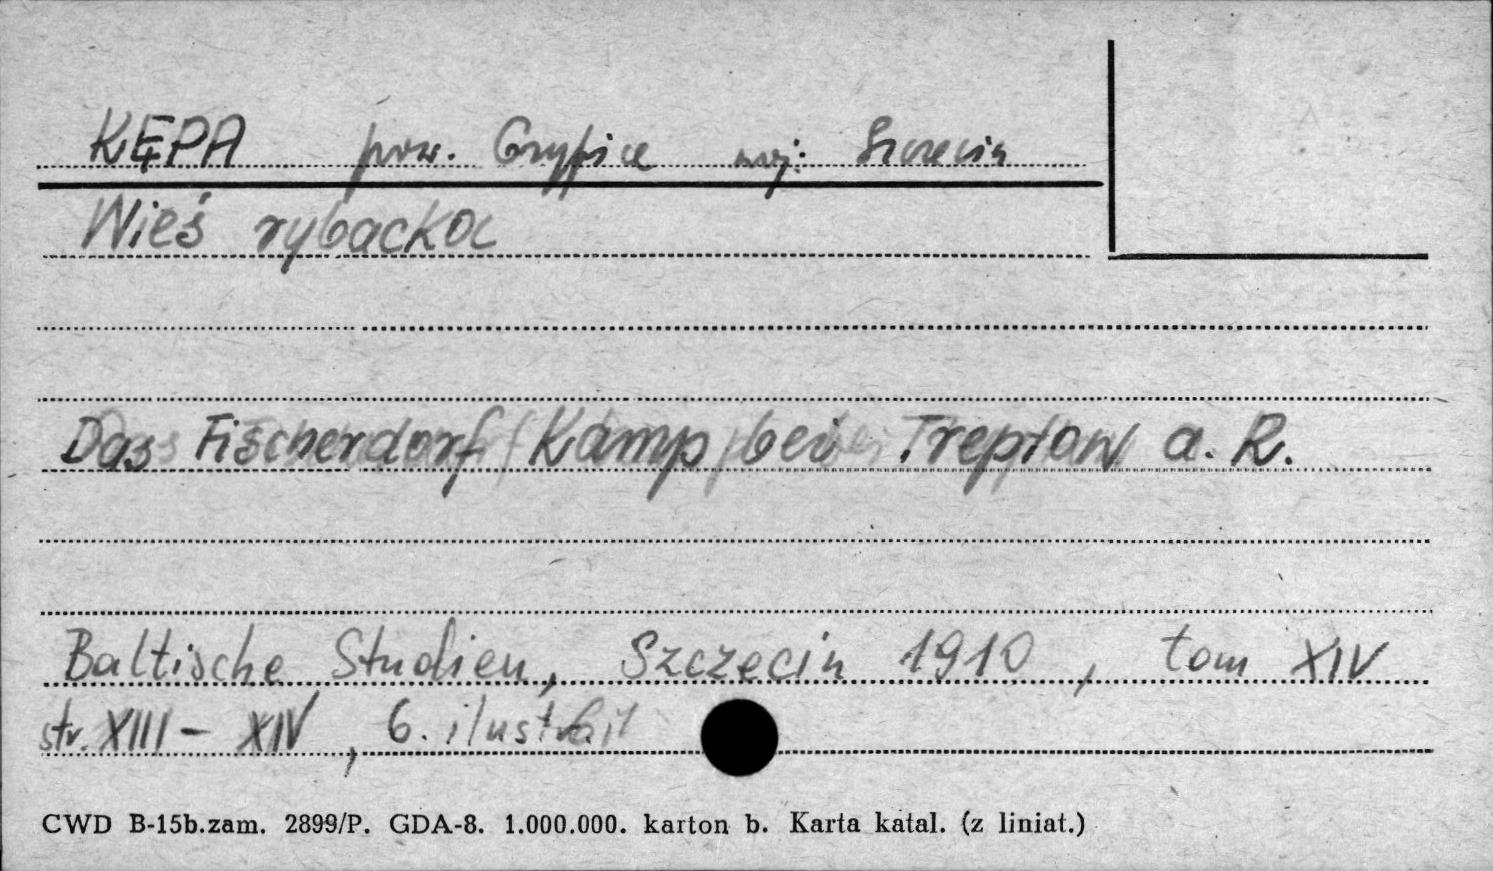 KĘPA pow. Gryfice woj: Szczecin
Wieś rybacka
Das Fischerdorf Kamp bei Treptow a. R.
Baltische Studien, Szczecin 1910, tom XIV
str. XIII - XIV, 6. ilustracji
CWD B-15b.zam. 2899/P. GDA-8. 1.000.000. karton b. Karta katal. (z liniat.)